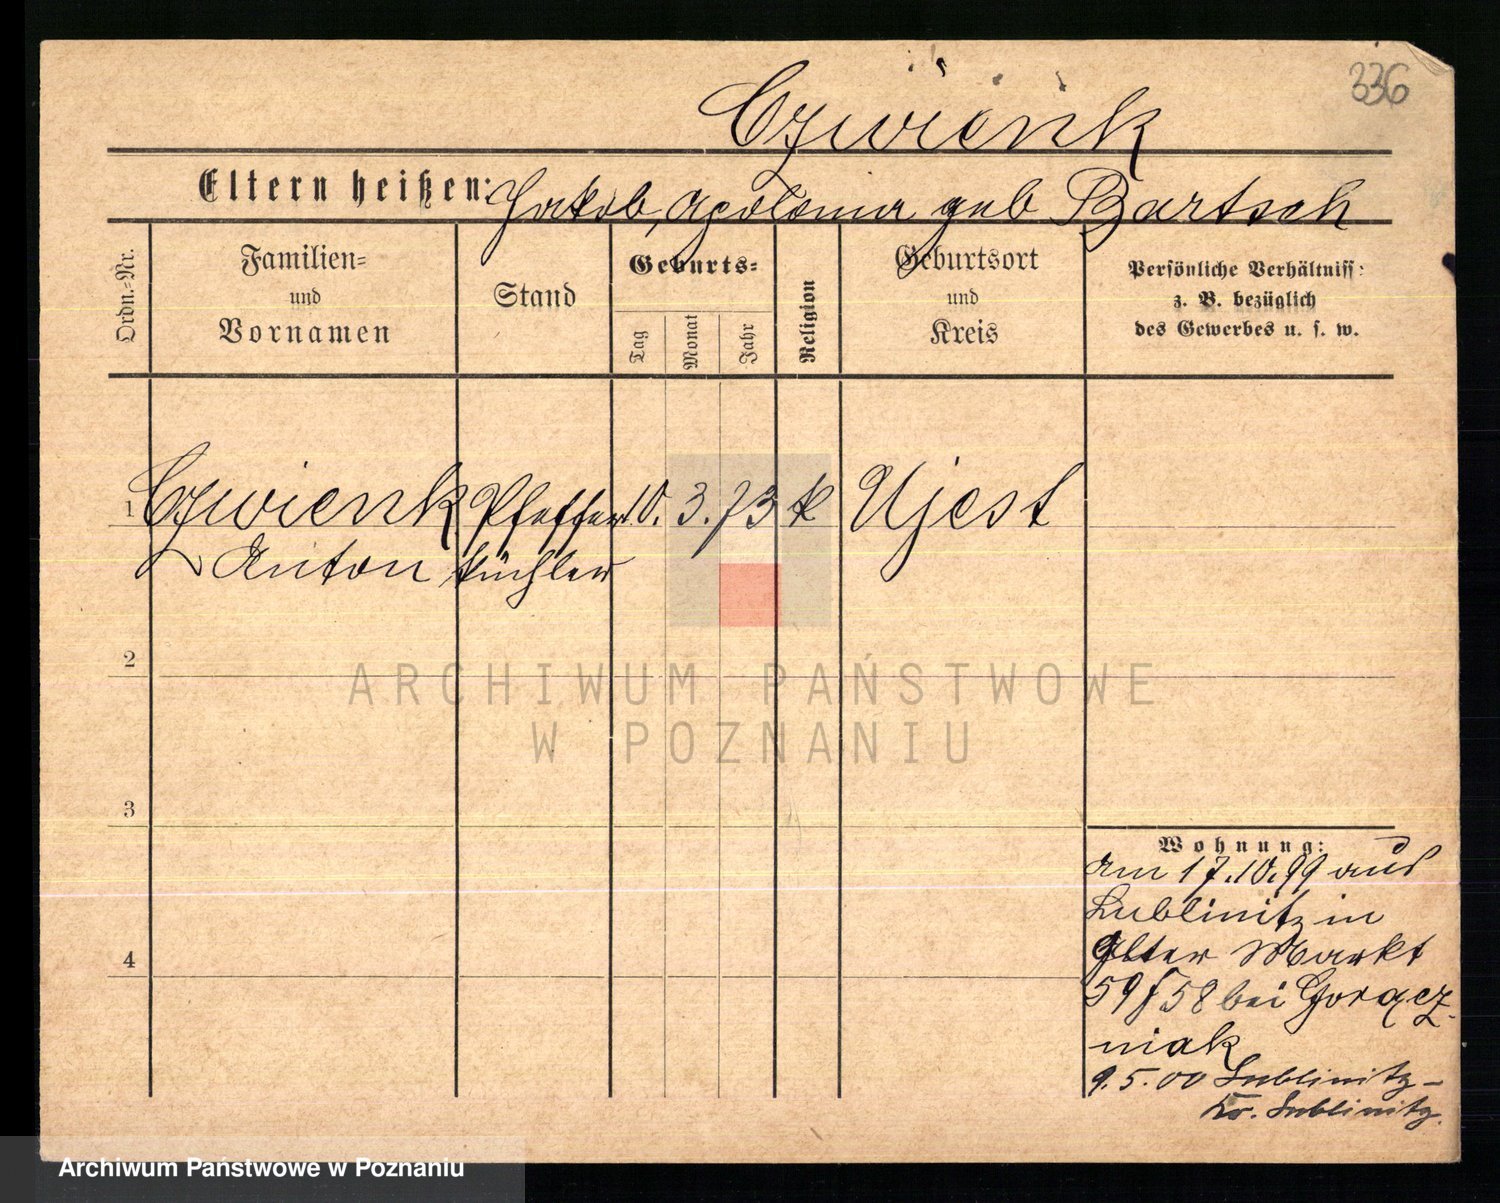 336
Czwienk
Eltern heißen: Jakob, Apolonia geb Bartsch
Ordn.-Nr.
Familien=
und
Vornamen
Stand
Geburts=
Tag
Monat
Jahr
Religion
Geburtsort
und
Kreis
Persönliche Verhältniss:
z. B. bezüglich
des Gewerbes u. s. w.
1 Czwienk Pfeffer 10. 3. 73 k Ujest
Anton küchler
2
ARCHIWUM PAŃSTWOWE
W POZNANIU
3
Wohnung:
am 17.10.99 aus
Lublinitz in
Alter Markt
59/58 bei Gorącz-
niak
4
9.5.00 Lublinitz -
Kr. Lublinitz.
Archiwum Państwowe w Poznaniu